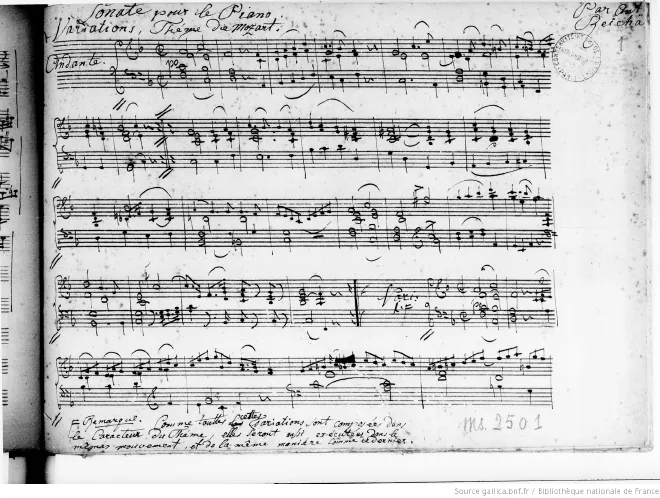 Sonate pour le Piano.
Par Ant
Reicha
Variations, Thême de Mozart.
1
Andante.
Varia:
1.=
= Remarque. Comme toutes cettes Variations, sont composées dans
le Caractère du Thême, elles seront aussi exécutées dans le
mêmes mouvement, et de la même manière comme ce dernier.
ms. 2501
Source gallica.bnf.fr / Bibliothèque nationale de France